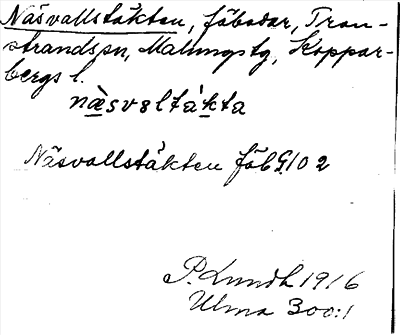 Näsvallstäkten, fäbodar, Tran-
strands sn, Malungs tg, Koppar-
bergs l.
næsvsltákta
Näsvallstäkten fäb G102
P. Lundh 1916
Ulma 300:1